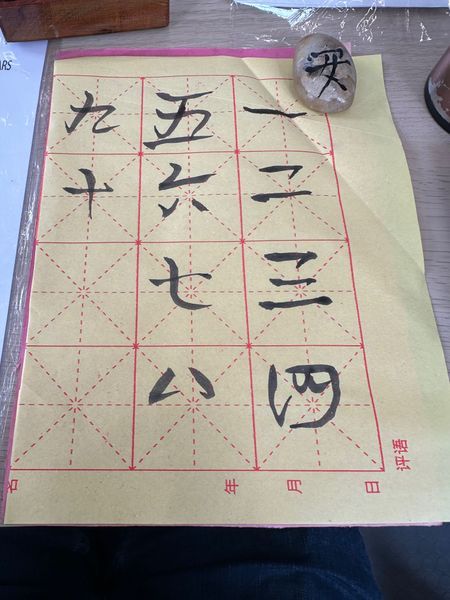 一
二
三
四
五
六
七
八
九
十
安
评语
年 月 日
ARS